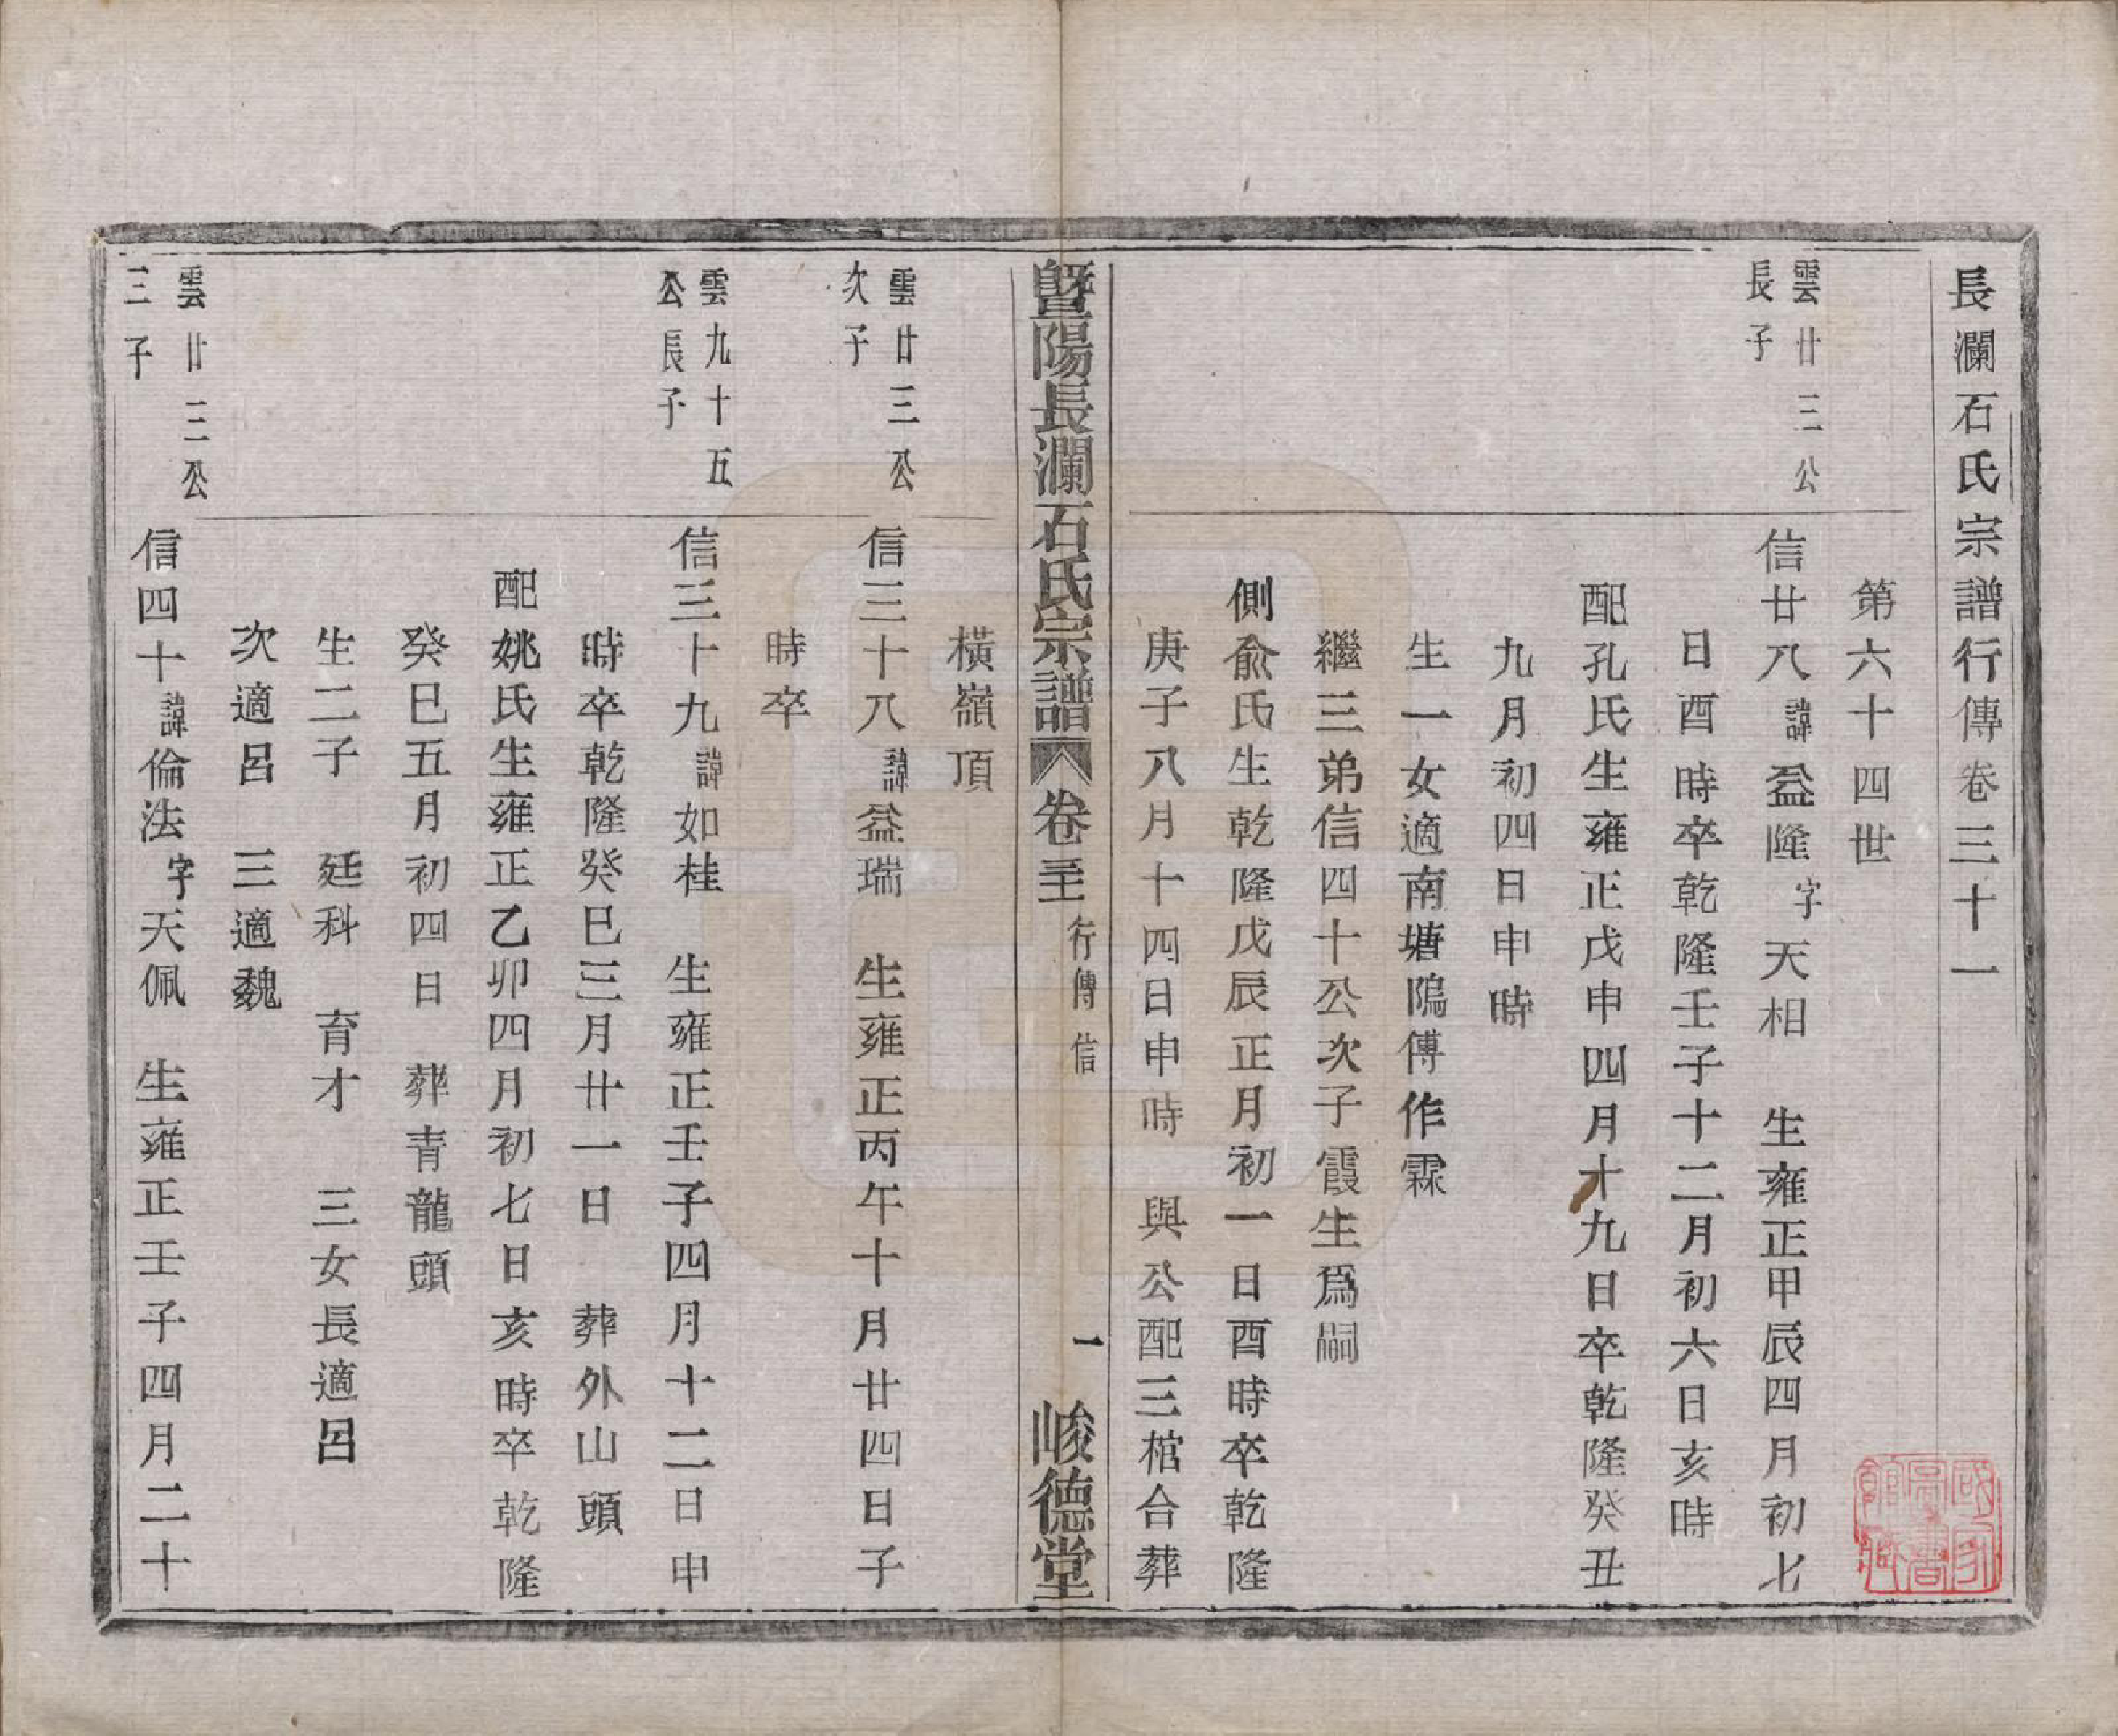 長瀾石氏宗譜行傳卷三十一
第六十四世
雲廿三公
長子
信廿八諱益隆字天相　生雍正甲辰四月初七
日酉時卒乾隆壬子十二月初六日亥時
配孔氏生雍正戊申四月十九日卒乾隆癸丑
九月初四日申時
生一女適南塘隖傅作霖
繼三弟信四十公次子霞生爲嗣
側俞氏生乾隆戊辰正月初一日酉時卒乾隆
庚子八月十四日申時　與公配三棺合葬
暨陽長瀾石氏宗譜　卷三十一　行傳　信　一　峻德堂
橫嶺頂
雲廿三公
次子
信三十八諱益瑞　生雍正丙午十月廿四日子
時卒
雲九十五
公長子
信三十九諱如桂　生雍正壬子四月十二日申
時卒乾隆癸巳三月廿一日　葬外山頭
配姚氏生雍正乙卯四月初七日亥時卒乾隆
癸巳五月初四日　葬青龍頭
生二子　廷科　育才　三女長適呂
次適呂　三適魏
雲廿三公
三子
信四十諱倫法字天佩　生雍正壬子四月二十